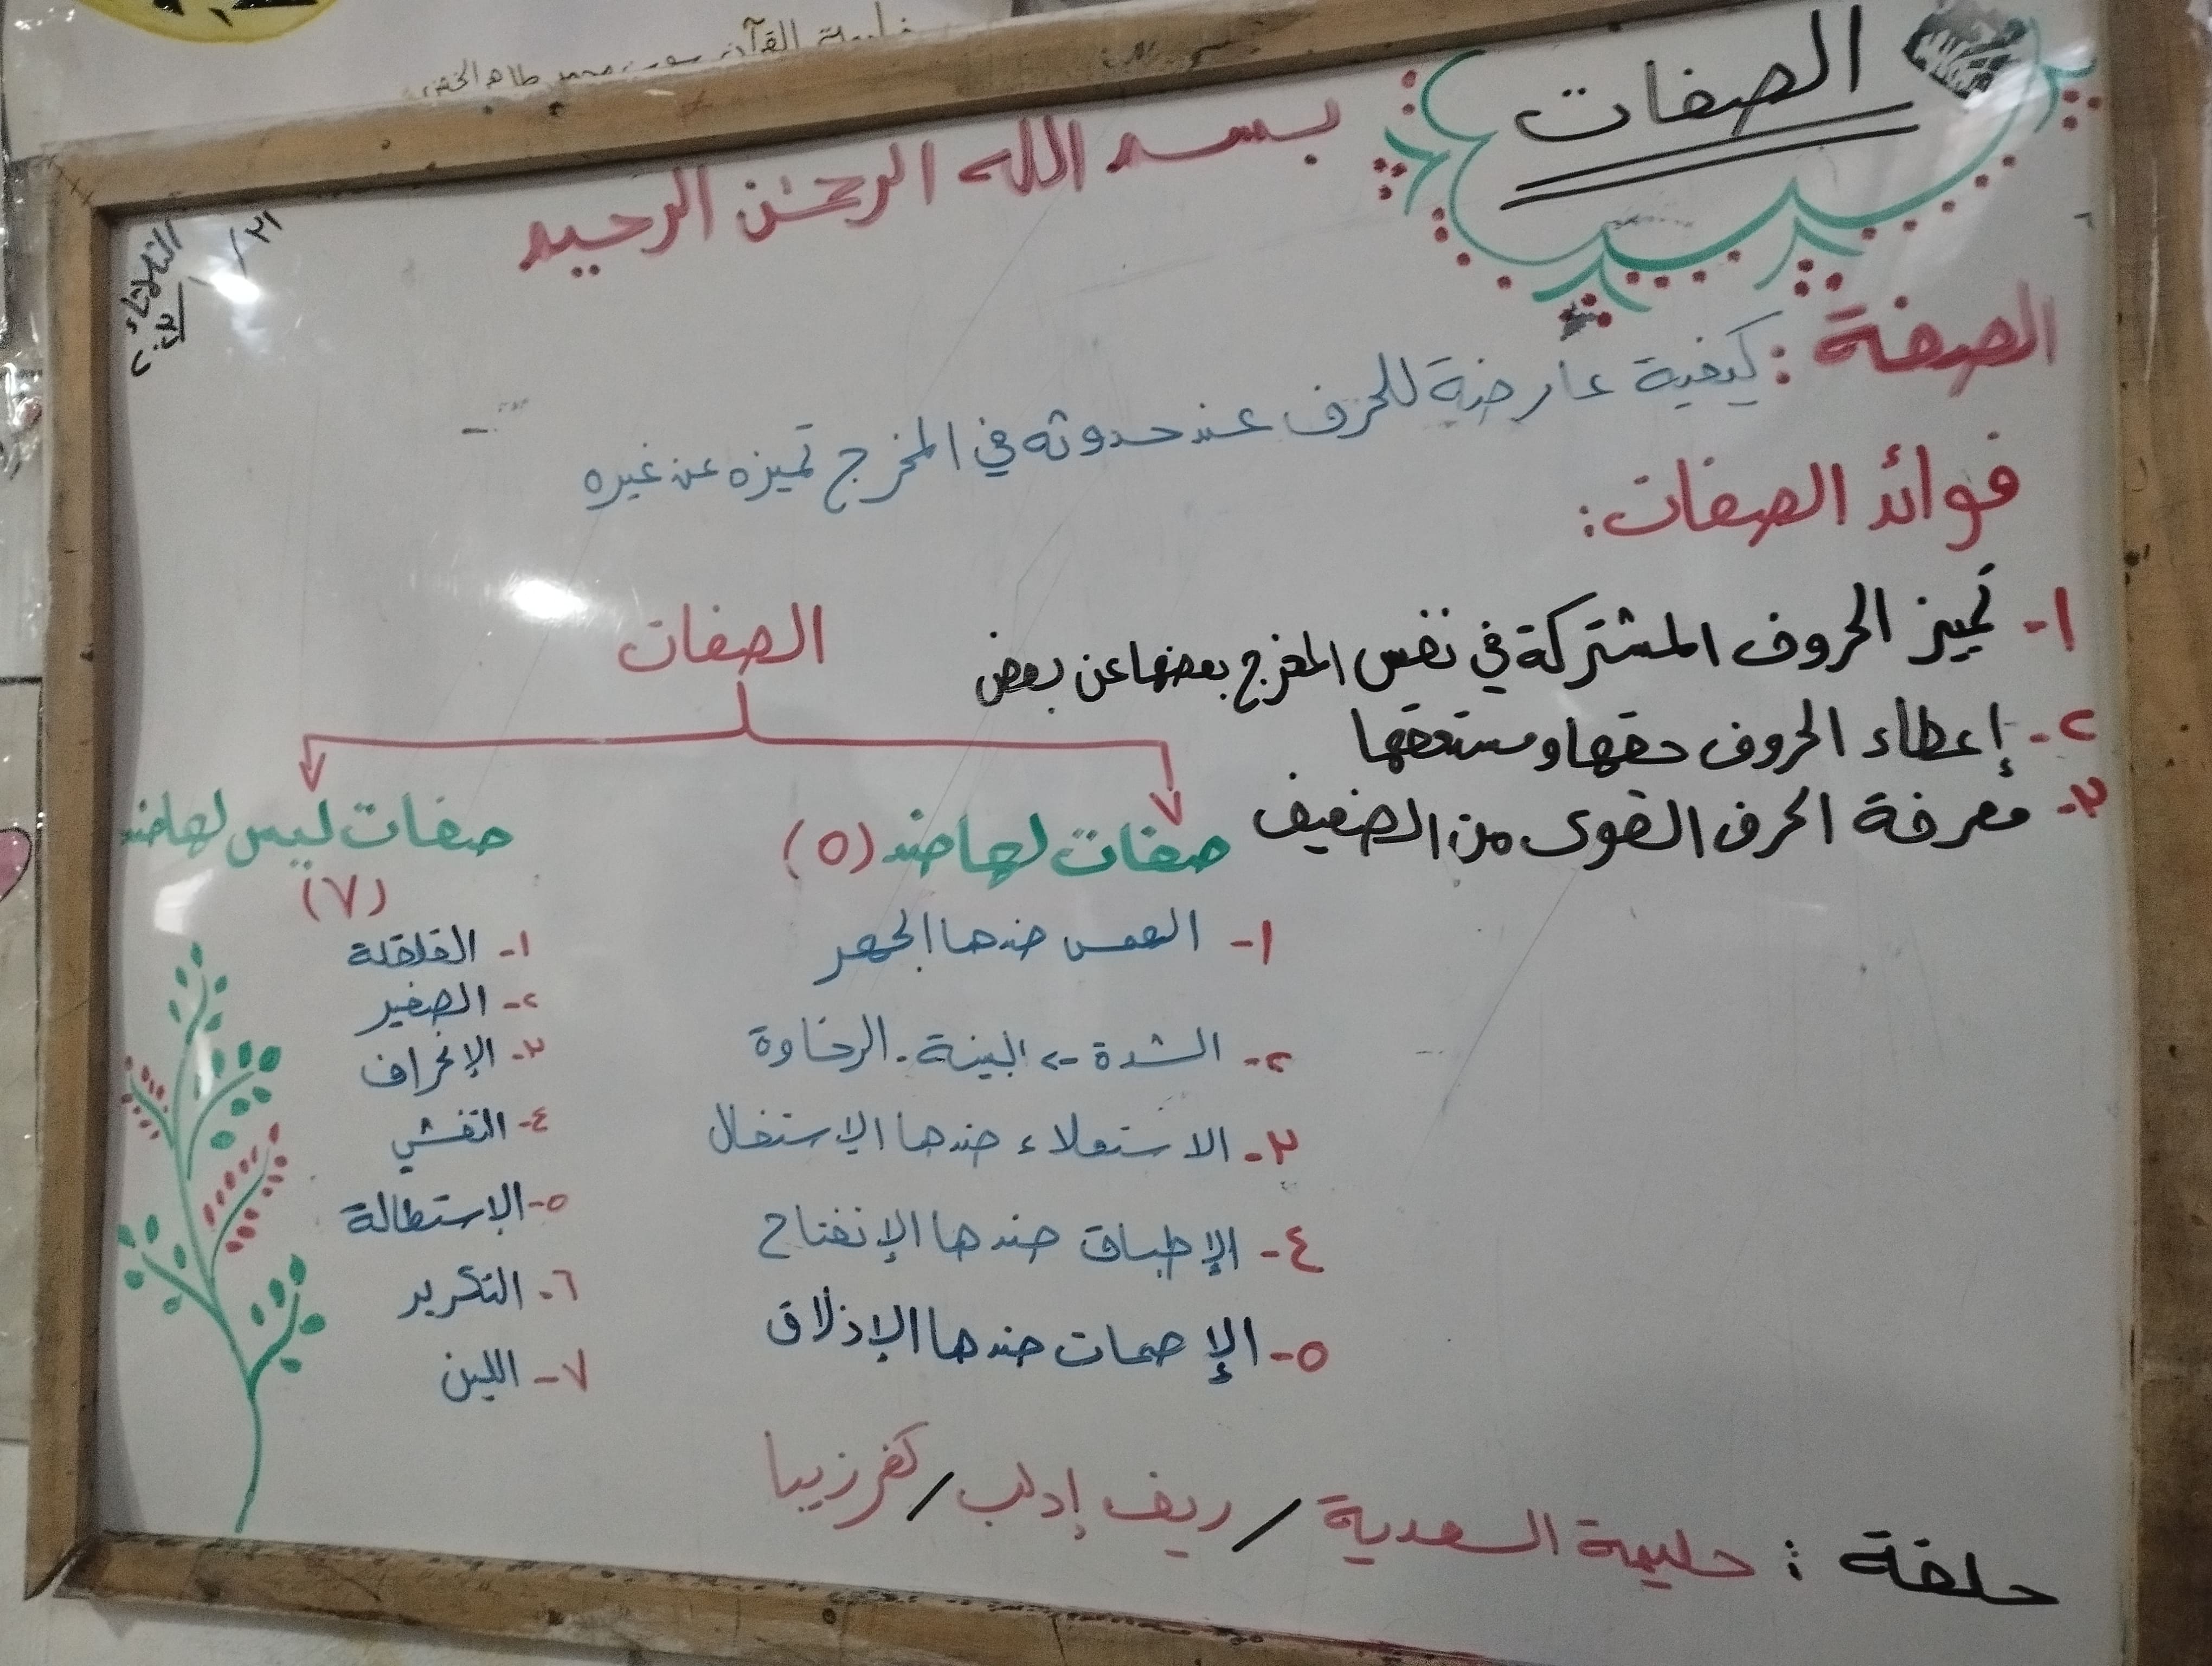 القرآن
محمد طاهر
الصفات
بسم الله الرحمن الرحيم
الثلاثاء
٢١/
الصفة: كيفية عارضة للحرف عند حدوثه في المخرج تميزه عن غيره
فوائد الصفات:
١- تمييز الحروف المشتركة في نفس المخرج بعضها عن بعض
٢- إعطاء الحروف حقها ومستحقها
٣- معرفة الحرف القوي من الضعيف
الصفات
صفات لها ضد (٥)
١- الهمس ضدها الجهر
٢- الشدة -> البينة - الرخاوة
٣- الاستعلاء ضدها الإستفال
٤- الإطباق ضدها الإنفتاح
٥- الإصمات ضدها الإذلاق
صفات ليس لها ضد
(٧)
١- القلقلة
٢- الصفير
٣- الإنحراف
٤- التفشي
٥- الإستطالة
٦- التكرير
٧- اللين
حلقة : حليمة السعدية / ريف إدلب / كفرزيبا